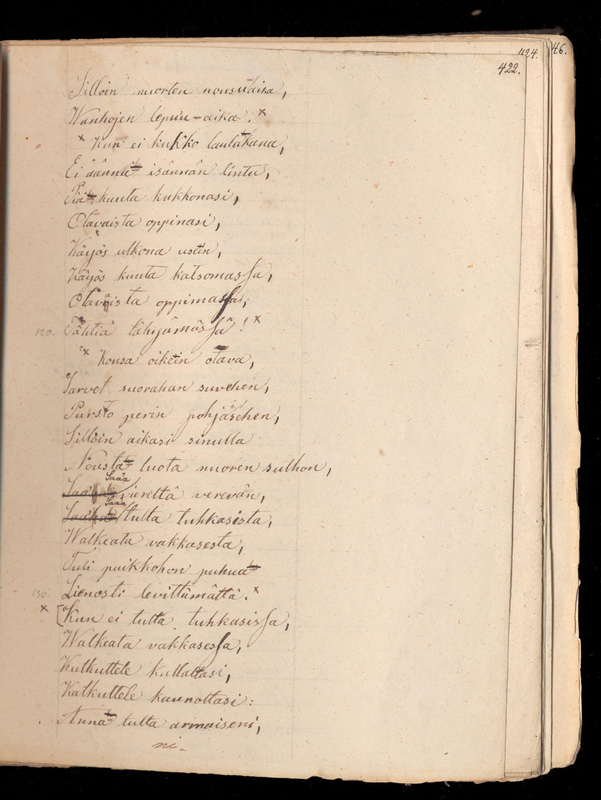 424.
46.
422.
Silloin nuorten nousuaika,
Wanhojen lepuu-aika. ×
× Kun ei kukko laulakana,
Ei äännä isännän lintu,
Piä kuuta kukkonasi,
Otavaista oppinasi,
Käyös ulkona usein,
Käyös kuuta katsomassa,
Otavaista oppimassa,
120. Tähtiä tähyämössä! ×
× Konsa oikein otava,
Sarvet suorahan suvehen,
Pursto perin pohjasehen,
Silloin aikasi sinulla
Nousta luota nuoren sulhon,
Saaa vierettä verevän,
Saaa tulta tuhkasesta,
Walkeata vakkasesta,
Tuli puikkohon puhua
130. Lienosti levittämättä. ×
× [Kun ei tulta tuhkasissa,
Walkeata vakkasessa,
Kutkuttele kullaltasi,
Katkuttele kaunoltasi:
Anna tulta armaiseni,
ni-